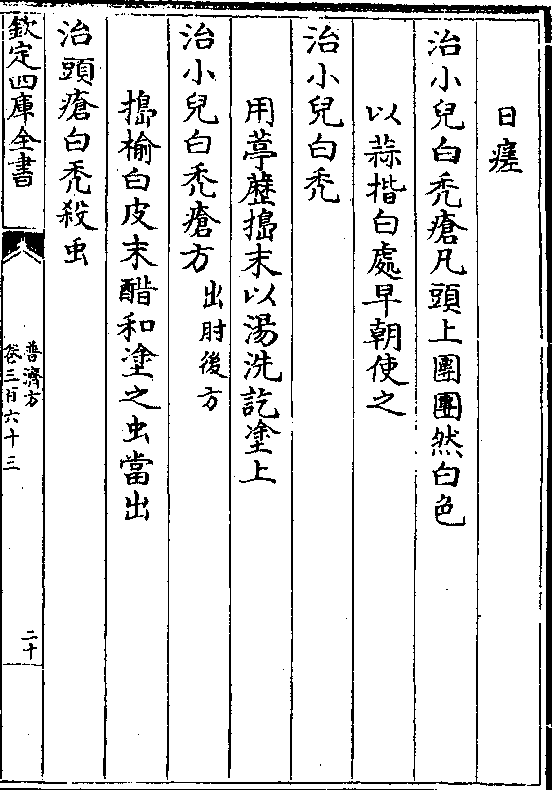 日瘥
治小兒白禿瘡凡頭上團團然白色
以蒜揩白處早朝使之
治小兒白禿
用葶藶搗末以湯洗訖塗上
治小兒白禿瘡方 出肘後方
搗榆白皮末醋和塗之虫當出
治頭瘡白禿殺虫
欽定四庫全書
普濟方
卷三百六十三
二十